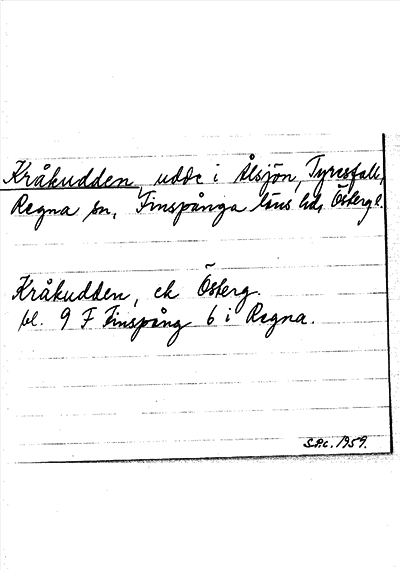 Kråkudden, udde i Ålsjön, Tyresfall,
Regna sn, Finspånga läns hd, Östergl.
Kråkudden, ek Österg.
bl. 9 F Finspång 6 i Regna.
1959.